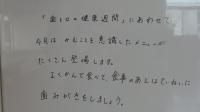 「歯と口の健康週間」にあわせて、
今月は かむことを意識したメニューが
たくさん登場します。
よくかんで食べて、食事のあとはていねいに
歯みがきをしましょう。